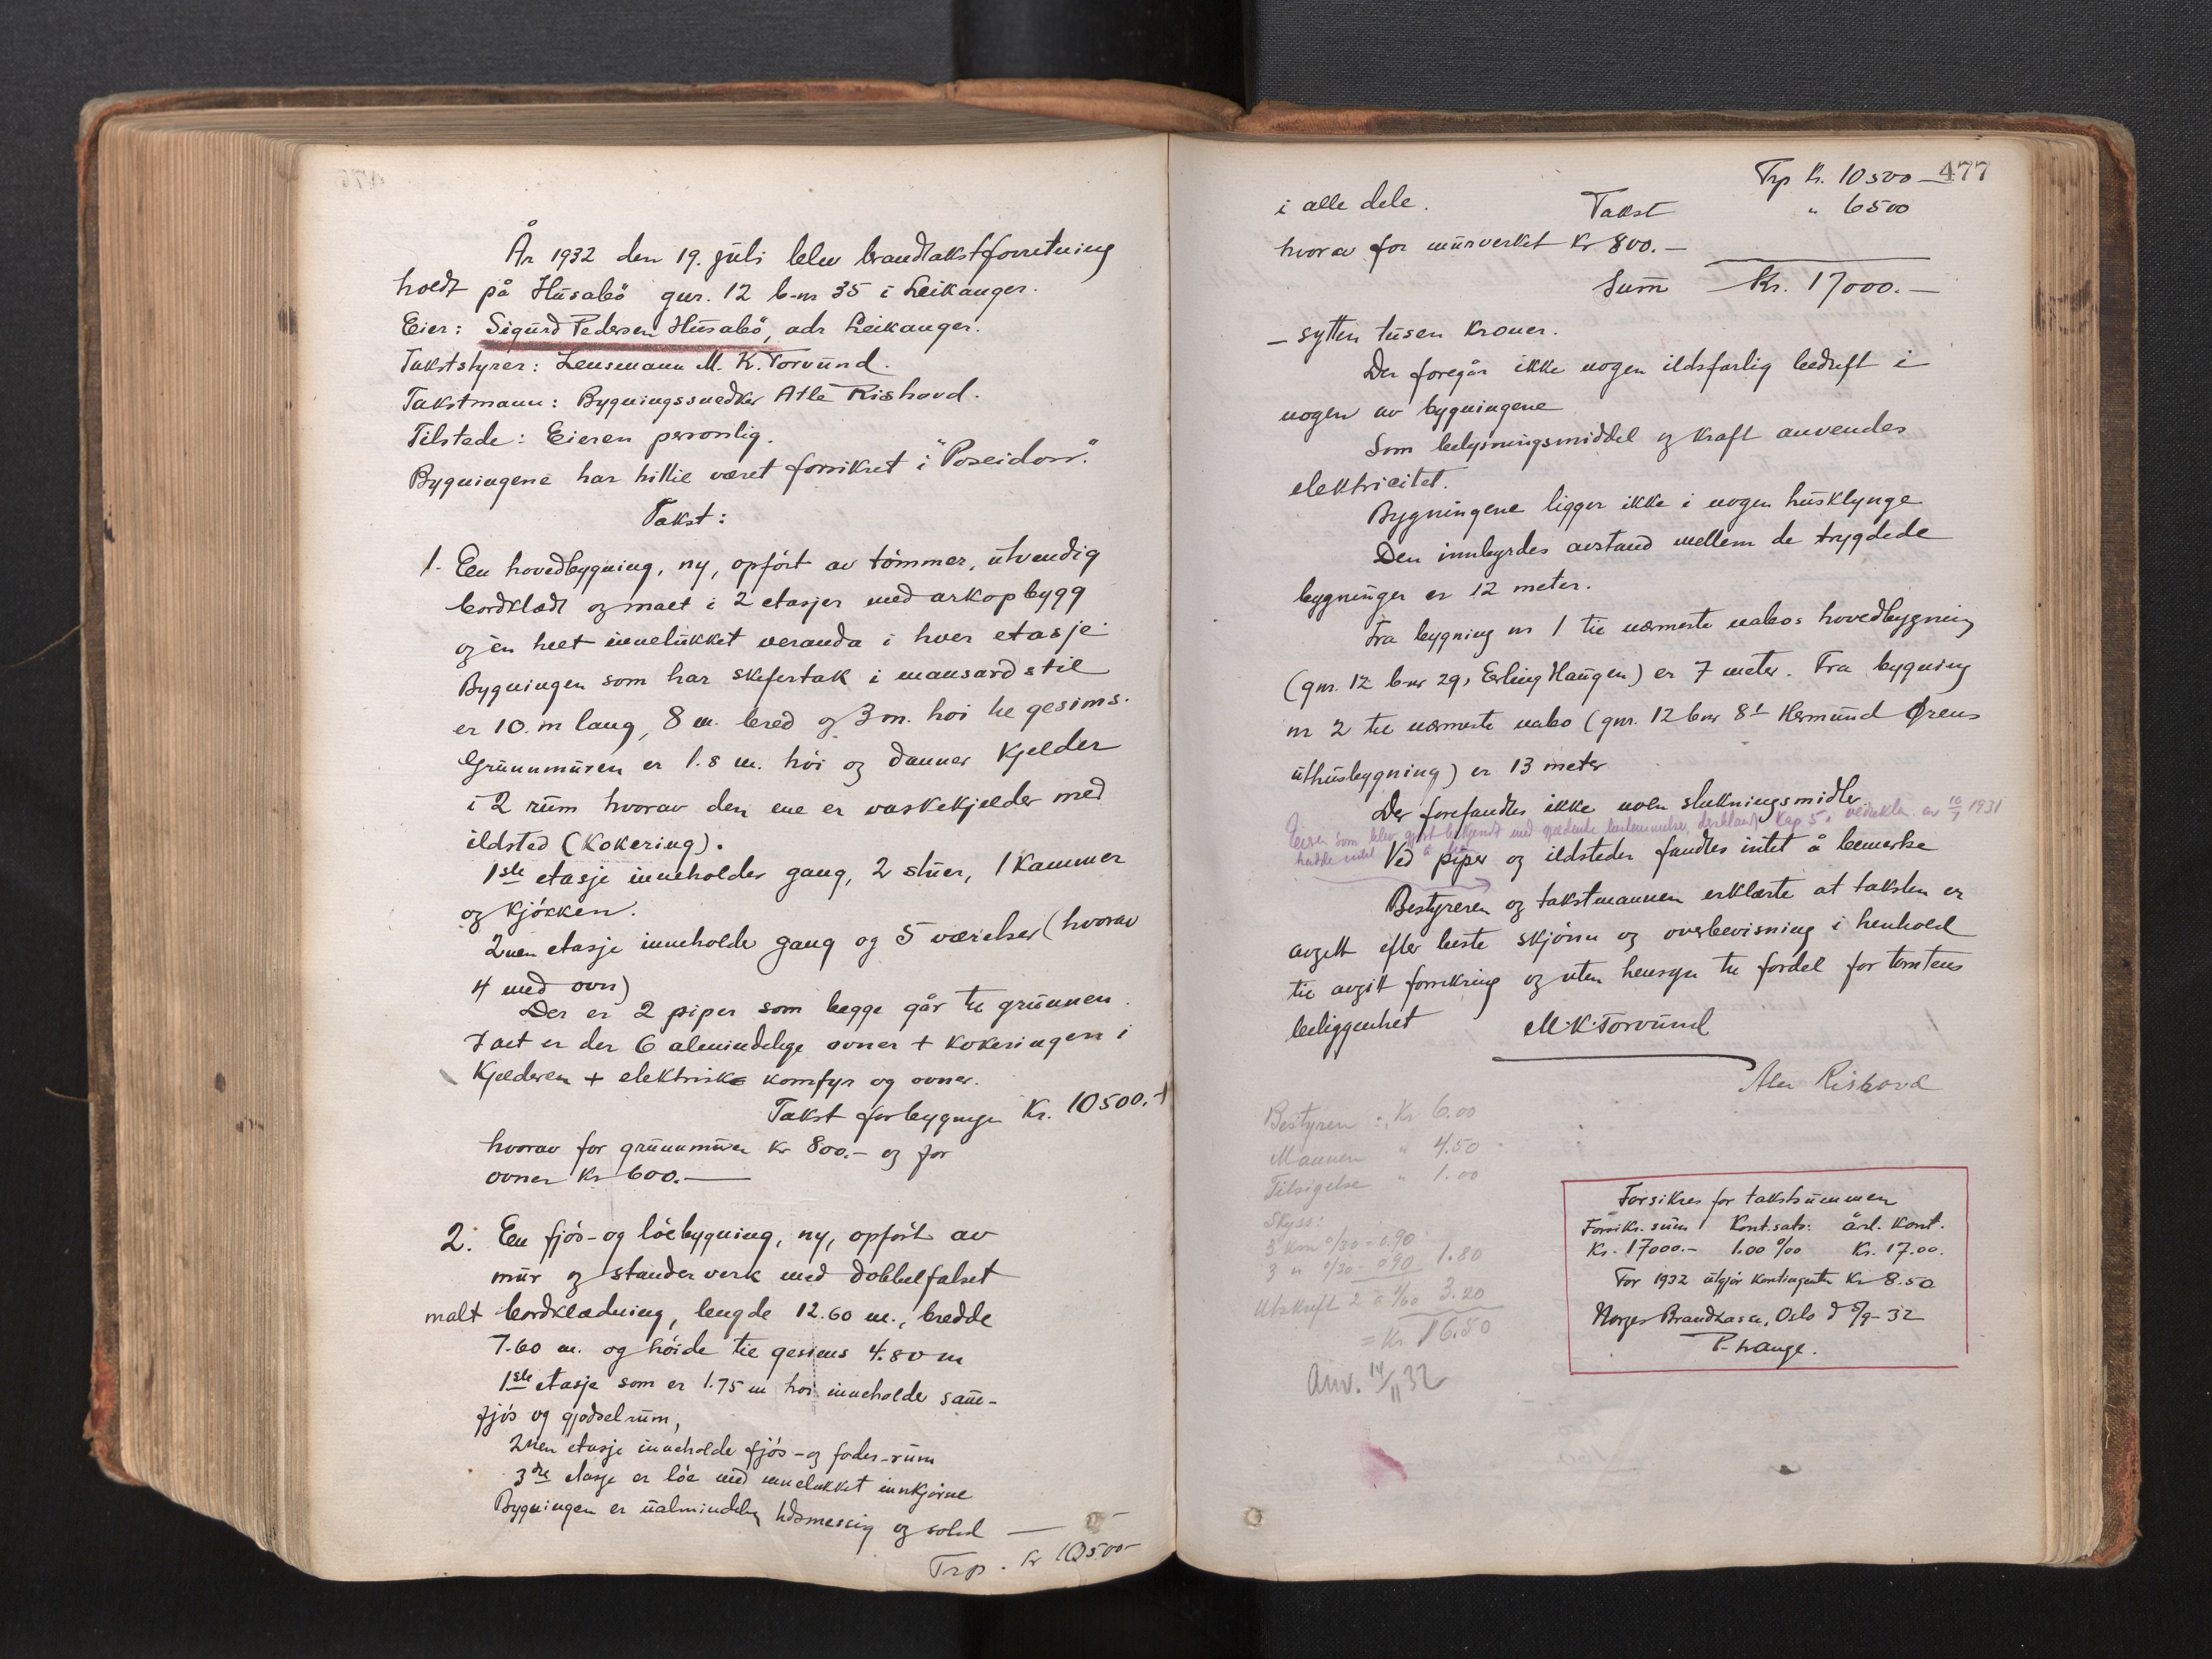 År 1932 den 19. juli blev brandtakstforretning
holdt på Husabö gnr. 12 b-nr 35 i Leikanger.
Eier: Sigurd Pedersen Husabö, adr Leikanger.
Takststyrer: Lensmann M. K. Torvund.
Takstmann: Bygningssnedker Atle Rishovd.
Tilstede: Eieren personlig.
Bygningene har hittil været forsikret i "Poseidon".
Takst:
1. En hovedbygning, ny, opfört av tömmer, utvendig
bordklædt og malt i 2 etasjer med arkopbygg
og en helt innelukket veranda i hver etasje.
Bygningen som har skifertak i mansardstil
er 10. m lang, 8 m. bred og 3 m. höi til gesims.
Grunnmuren er 1.8 m. höi og danner kjelder
i 2 rum hvorav den ene er vaskekjelder med
ildsted (kokering).
1ste etasje inneholder gang, 2 stuer, 1 kammer
og kjökken.
2nen etasje inneholder gang og 5 værelser (hvorav
4 med ovn)
Der er 2 piper som begge går til grunnen.
I alt er der 6 almindelige ovner + kokeringen i
kjelderen + elektrisk komfyr og ovner.
Takst for bygningen Kr. 10500.-
hvorav for grunnmuren kr 800.- og for
ovner Kr 600.-
2. En fjös- og löebygning, ny, opfört av
mur og standerverk med dobbelfalset
malt bordklædning, lengde 12.60 m., bredde
7.60 m. og höide til gesims 4.80 m
1ste etasje som er 1.75 m höi inneholder sau-
fjös og gjödselrum,
2nen etasje inneholde fjös- og foder-rum
3die etasje er löe med innelukket innkjörsel
Bygningen er ualmindelig tidsmessig og solid —
Trp. kr 10500-
477
Trp kr. 10500 —
i alle dele. Takst " 6500
hvorav for murverket Kr 800.-
Sum Kr. 17000.-
- sytten tusen kroner.
Der foregår ikke nogen ildsfarlig bedrift i
nogen av bygningene
Som belysningsmiddel og kraft anvendes
elektricitet.
Bygningene ligger ikke i nogen husklynge
Den innbyrdes avstand mellem de trygdede
bygninger er 12 meter.
Fra bygning nr 1 til nærmeste nabos hovedbygning
(gnr. 12 b-nr 29, Erling Haugen) er 7 meter. Fra bygning
nr 2 til nærmeste nabo (gnr. 12 bnr 8 Hermund Ørens
uthusbygning) er 13 meter
Der forefandtes ikke noen slukningsmidler.
Eieren som blev gjort bekjendt med gjeldende bestemmelser, deriblandt Kap 5 i av 10/7 1931
hadde intet å
Ved piper og ildsteder fandtes intet å bemerke
Bestyreren og takstmannen erklærte at taksten er
avgitt efter beste skjönn og overbevisning i henhold
til avgitt forsikring og uten hensyn til fordel for tomtens
beliggenhet M. K. Torvund
Atle Rishovd
Bestyren :, Kr 6.00
Mannen " 4.50
Tilsigelse " 1.00
Skyss:
3 km o/30 - 0.90
3 " o/30 0 90 1.80
Utskrift 2 a 1/60 3.20
= Kr 16.50
Anv. 14/11 32
Forsikres for takstsummen
Forsikr. sum Kont.sats: årl. kont.
Kr. 17000.- 1.00 o/oo Kr. 17.00.
For 1932 utgjör kontingenten Kr 8.50
Norges Brandkasse, Oslo d 5/9- 32
P. Lange.